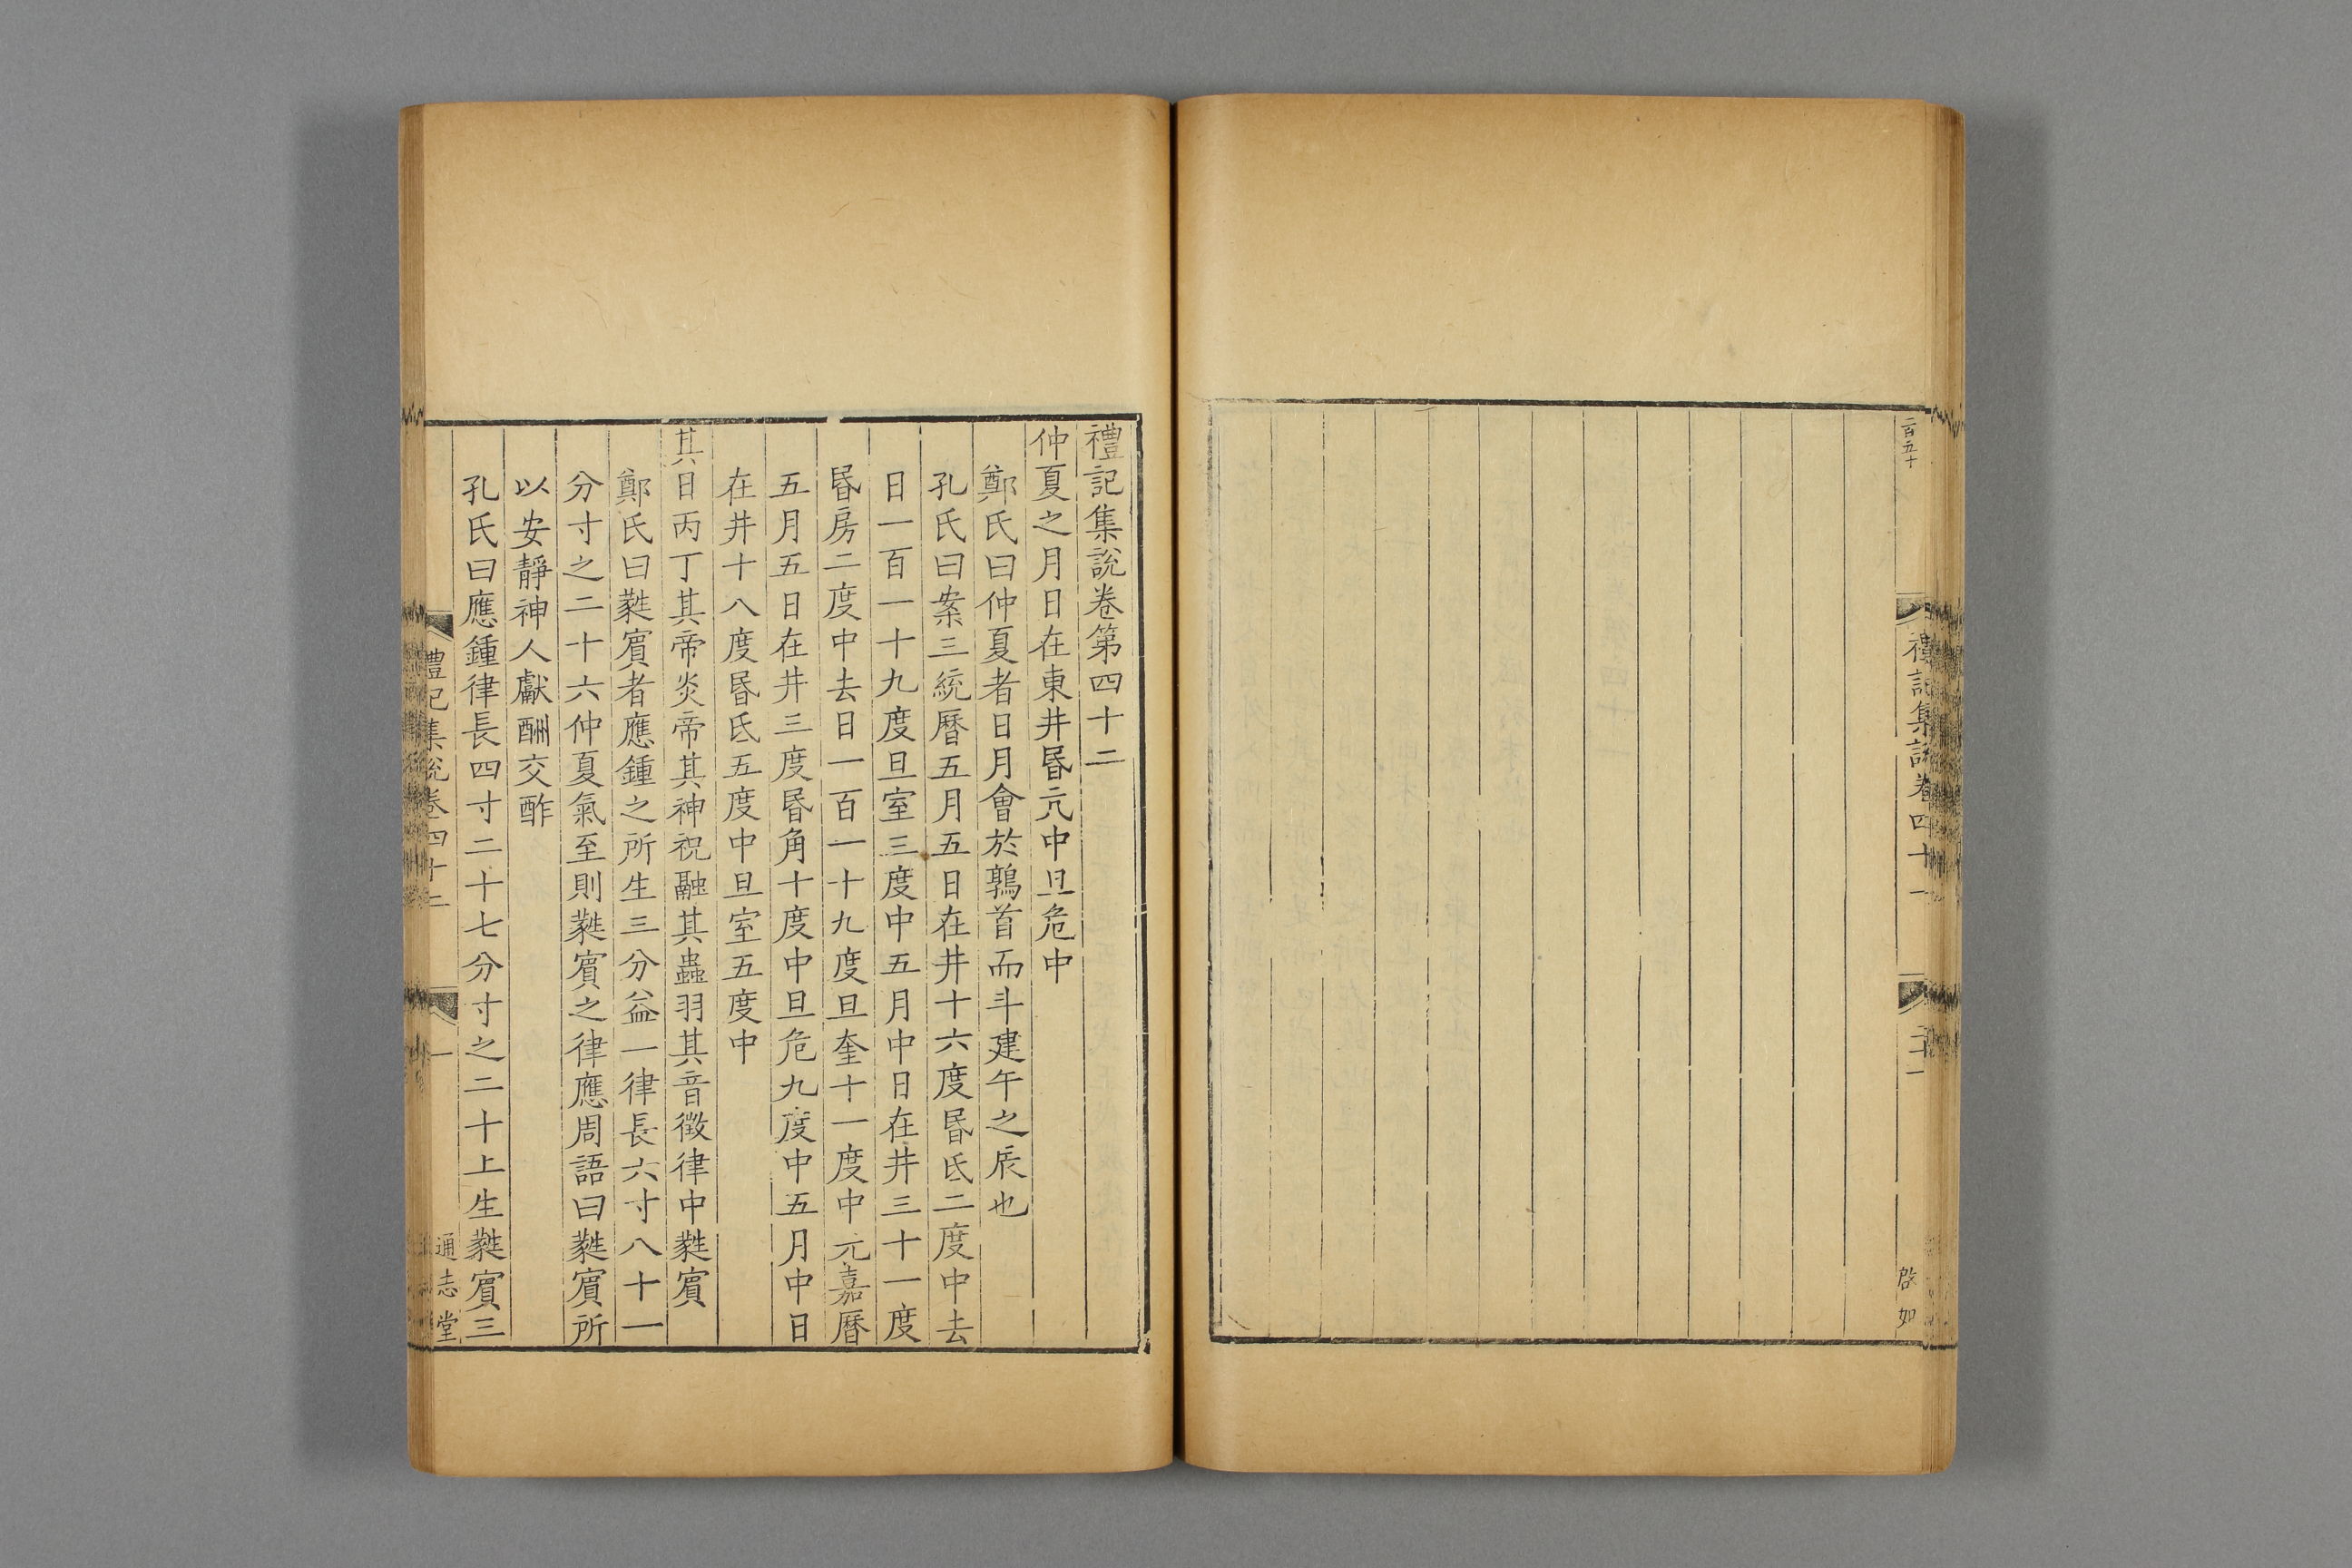 二百五十
禮記集説卷四十一
二十一
啟如
禮記集說卷第四十二
仲夏之月日在東井昬亢中旦危中
鄭氏曰仲夏者日月會於鶉首而斗建午之辰也
孔氏曰案三統曆五月五日在井十六度昬氐二度中去
日一百一十九度旦室三度中五月中日在井三十一度
昬房二度中去日一百一十九度旦奎十一度中元嘉曆
五月五日在井三度昬角十度中旦危九度中五月中日
在井十八度昬氐五度中旦室五度中
其日丙丁其帝炎帝其神祝融其蟲羽其音徵律中蕤賓
鄭氏曰蕤賓者應鍾之所生三分益一律長六寸八十一
分寸之二十六仲夏氣至則蕤賓之律應周語曰蕤賓所
以安靜神人獻酬交酢
孔氏曰應鍾律長四寸二十七分寸之二十上生蕤賓三
禮記集説卷四十二
一
通志堂